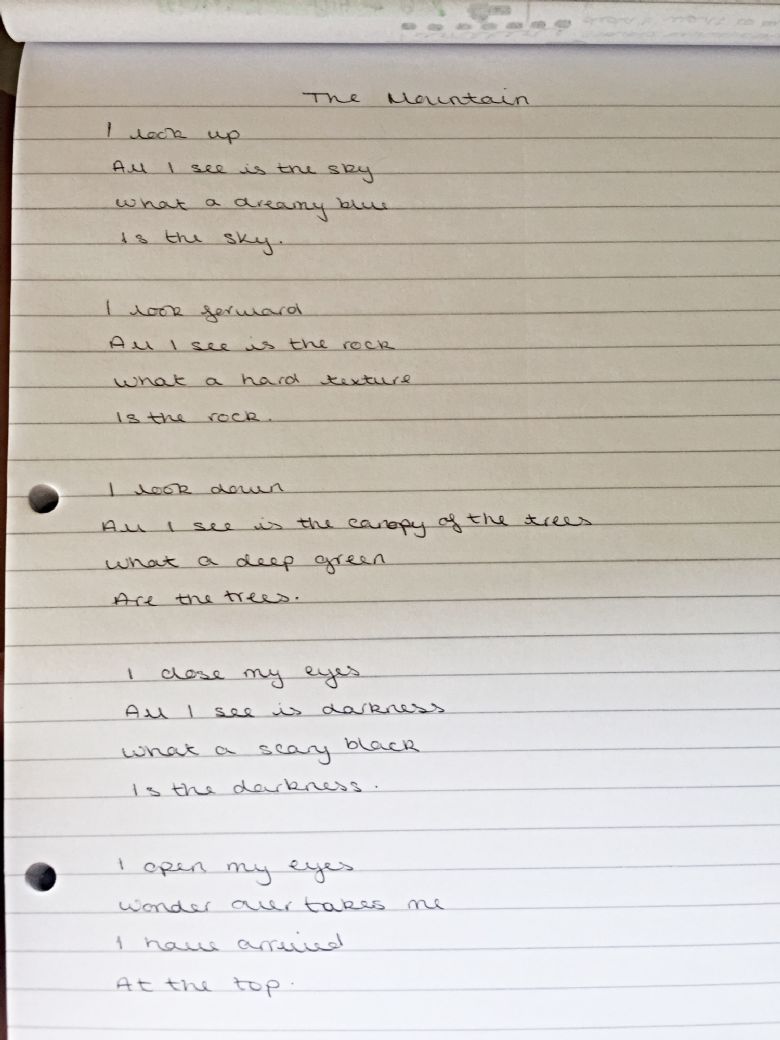 The Mountain
I look up
All I see is the sky
What a dreamy blue
Is the sky.
I look forward
All I see is the rock
What a hard texture
Is the rock.
I look down
All I see is the canopy of the trees
What a deep green
Are the trees.
I close my eyes
All I see is darkness
What a scary black
Is the darkness.
I open my eyes
Wonder overtakes me
I have arrived
At the top.